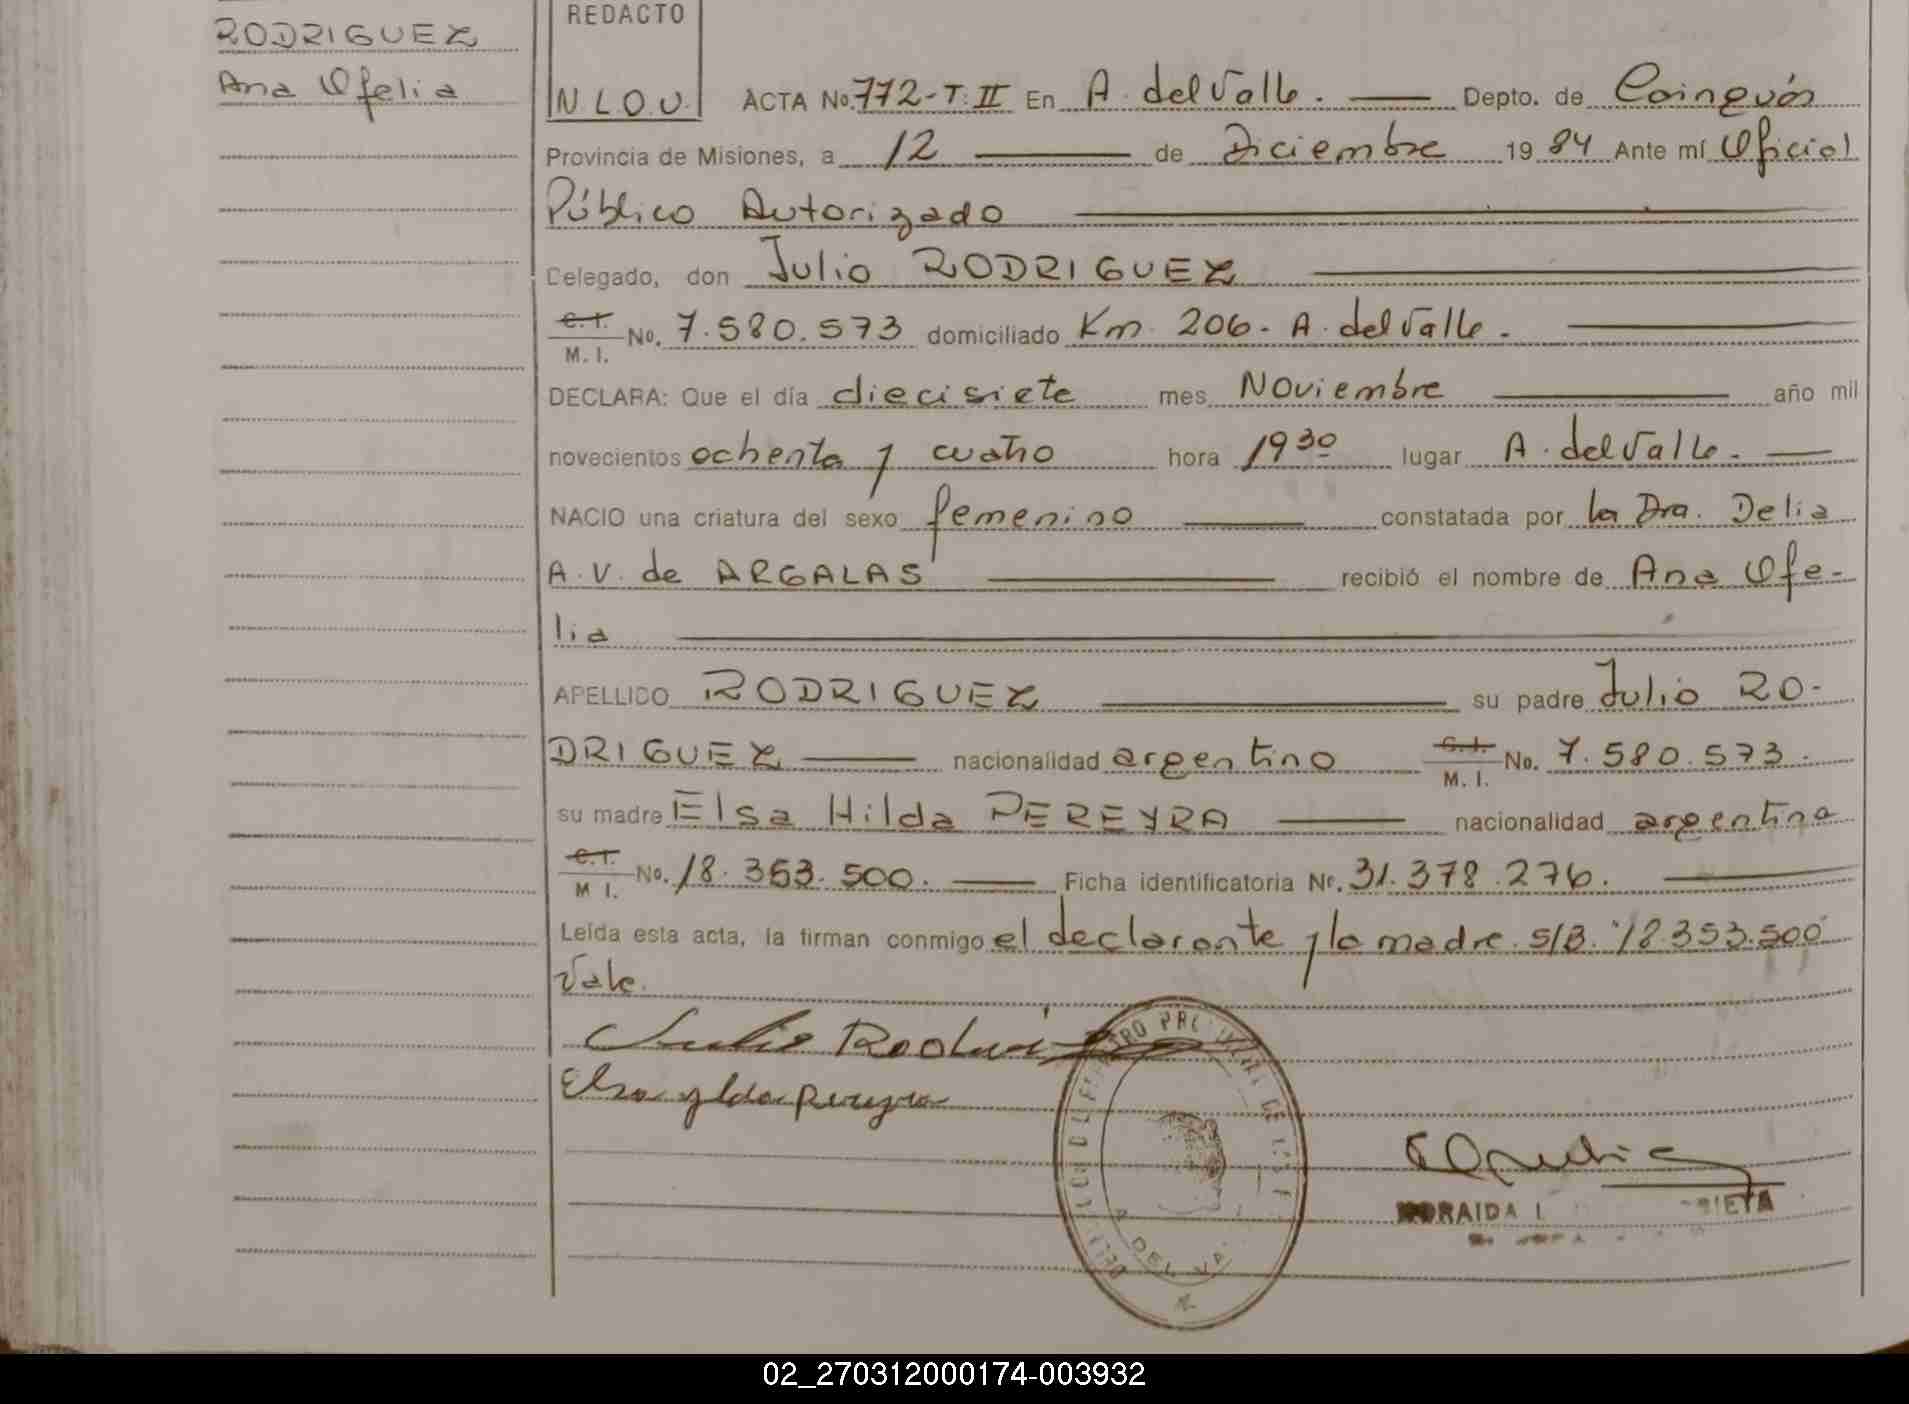 RODRIGUEZ
Ana Ofelia
REDACTO
N L O. U.
ACTA No. 772-T. II En A. del Valle. Depto. de Cainguás
Provincia de Misiones, a 12 de Diciembre 19 84 Ante mí Oficial
Público Autorizado
Delegado, don Julio RODRIGUEZ
C.I. M. I. No. 7.580.573 domiciliado Km. 206- A. del Valle.
DECLARA: Que el día diecisiete mes Noviembre año mil
novecientos ochenta y cuatro hora 19 30 lugar A. del Valle.
NACIO una criatura del sexo femenino constatada por la Dra. Delia
A. V. de ARGALAS recibió el nombre de Ana Ofe-
lia
APELLIDO RODRIGUEZ su padre Julio RO-
DRIGUEZ nacionalidad argentino C.I. M. I. No. 7.580.573.
su madre Elsa Hilda PEREYRA nacionalidad argentina
C.I. M I. No. 18.353.500. Ficha identificatoria Nr. 31.378.276.
Leída esta acta, la firman conmigo el declarante y la madre. S/B. "18.353.500"
Vale.
Julio Rodriguez
Elsa ylda pereyra
DEL VA
02_270312000174-003932